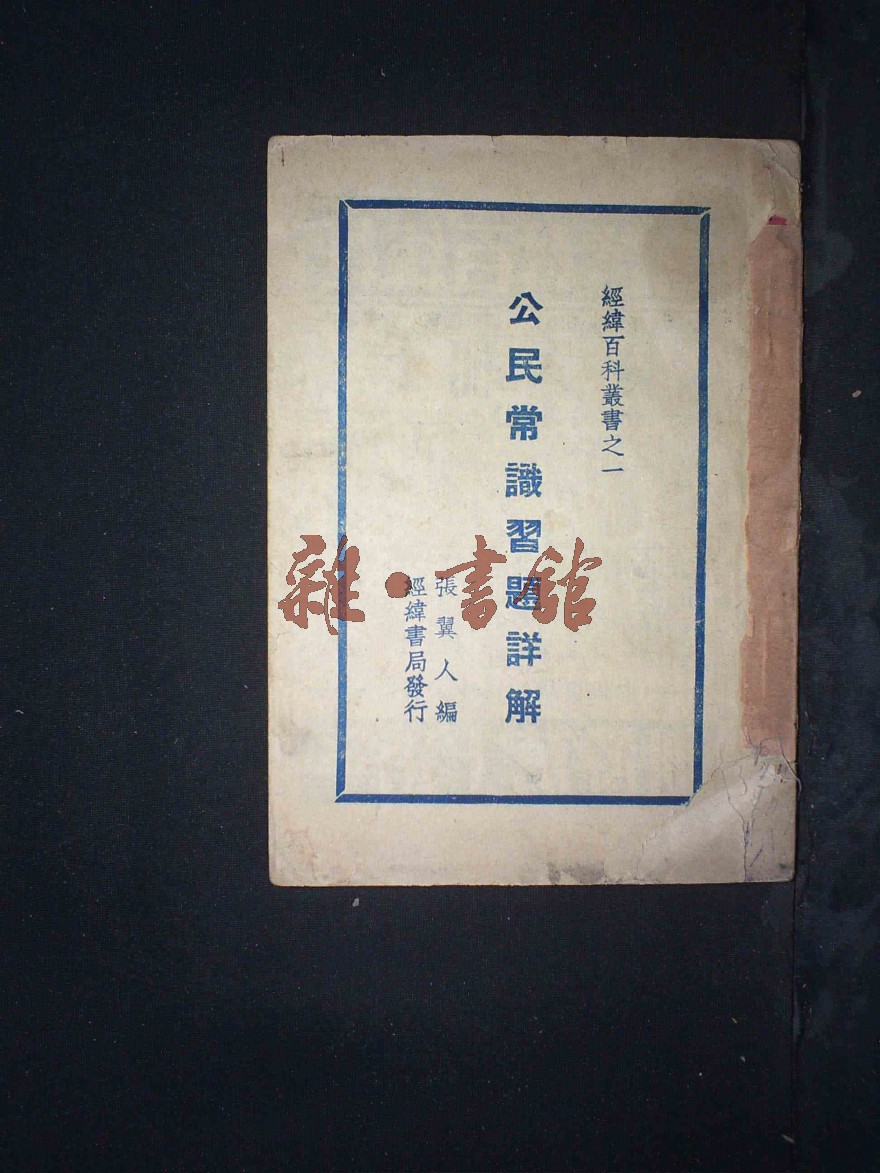 經緯百科叢書之一
公民常識習題詳解
張翼人編
經緯書局發行
雜·書館